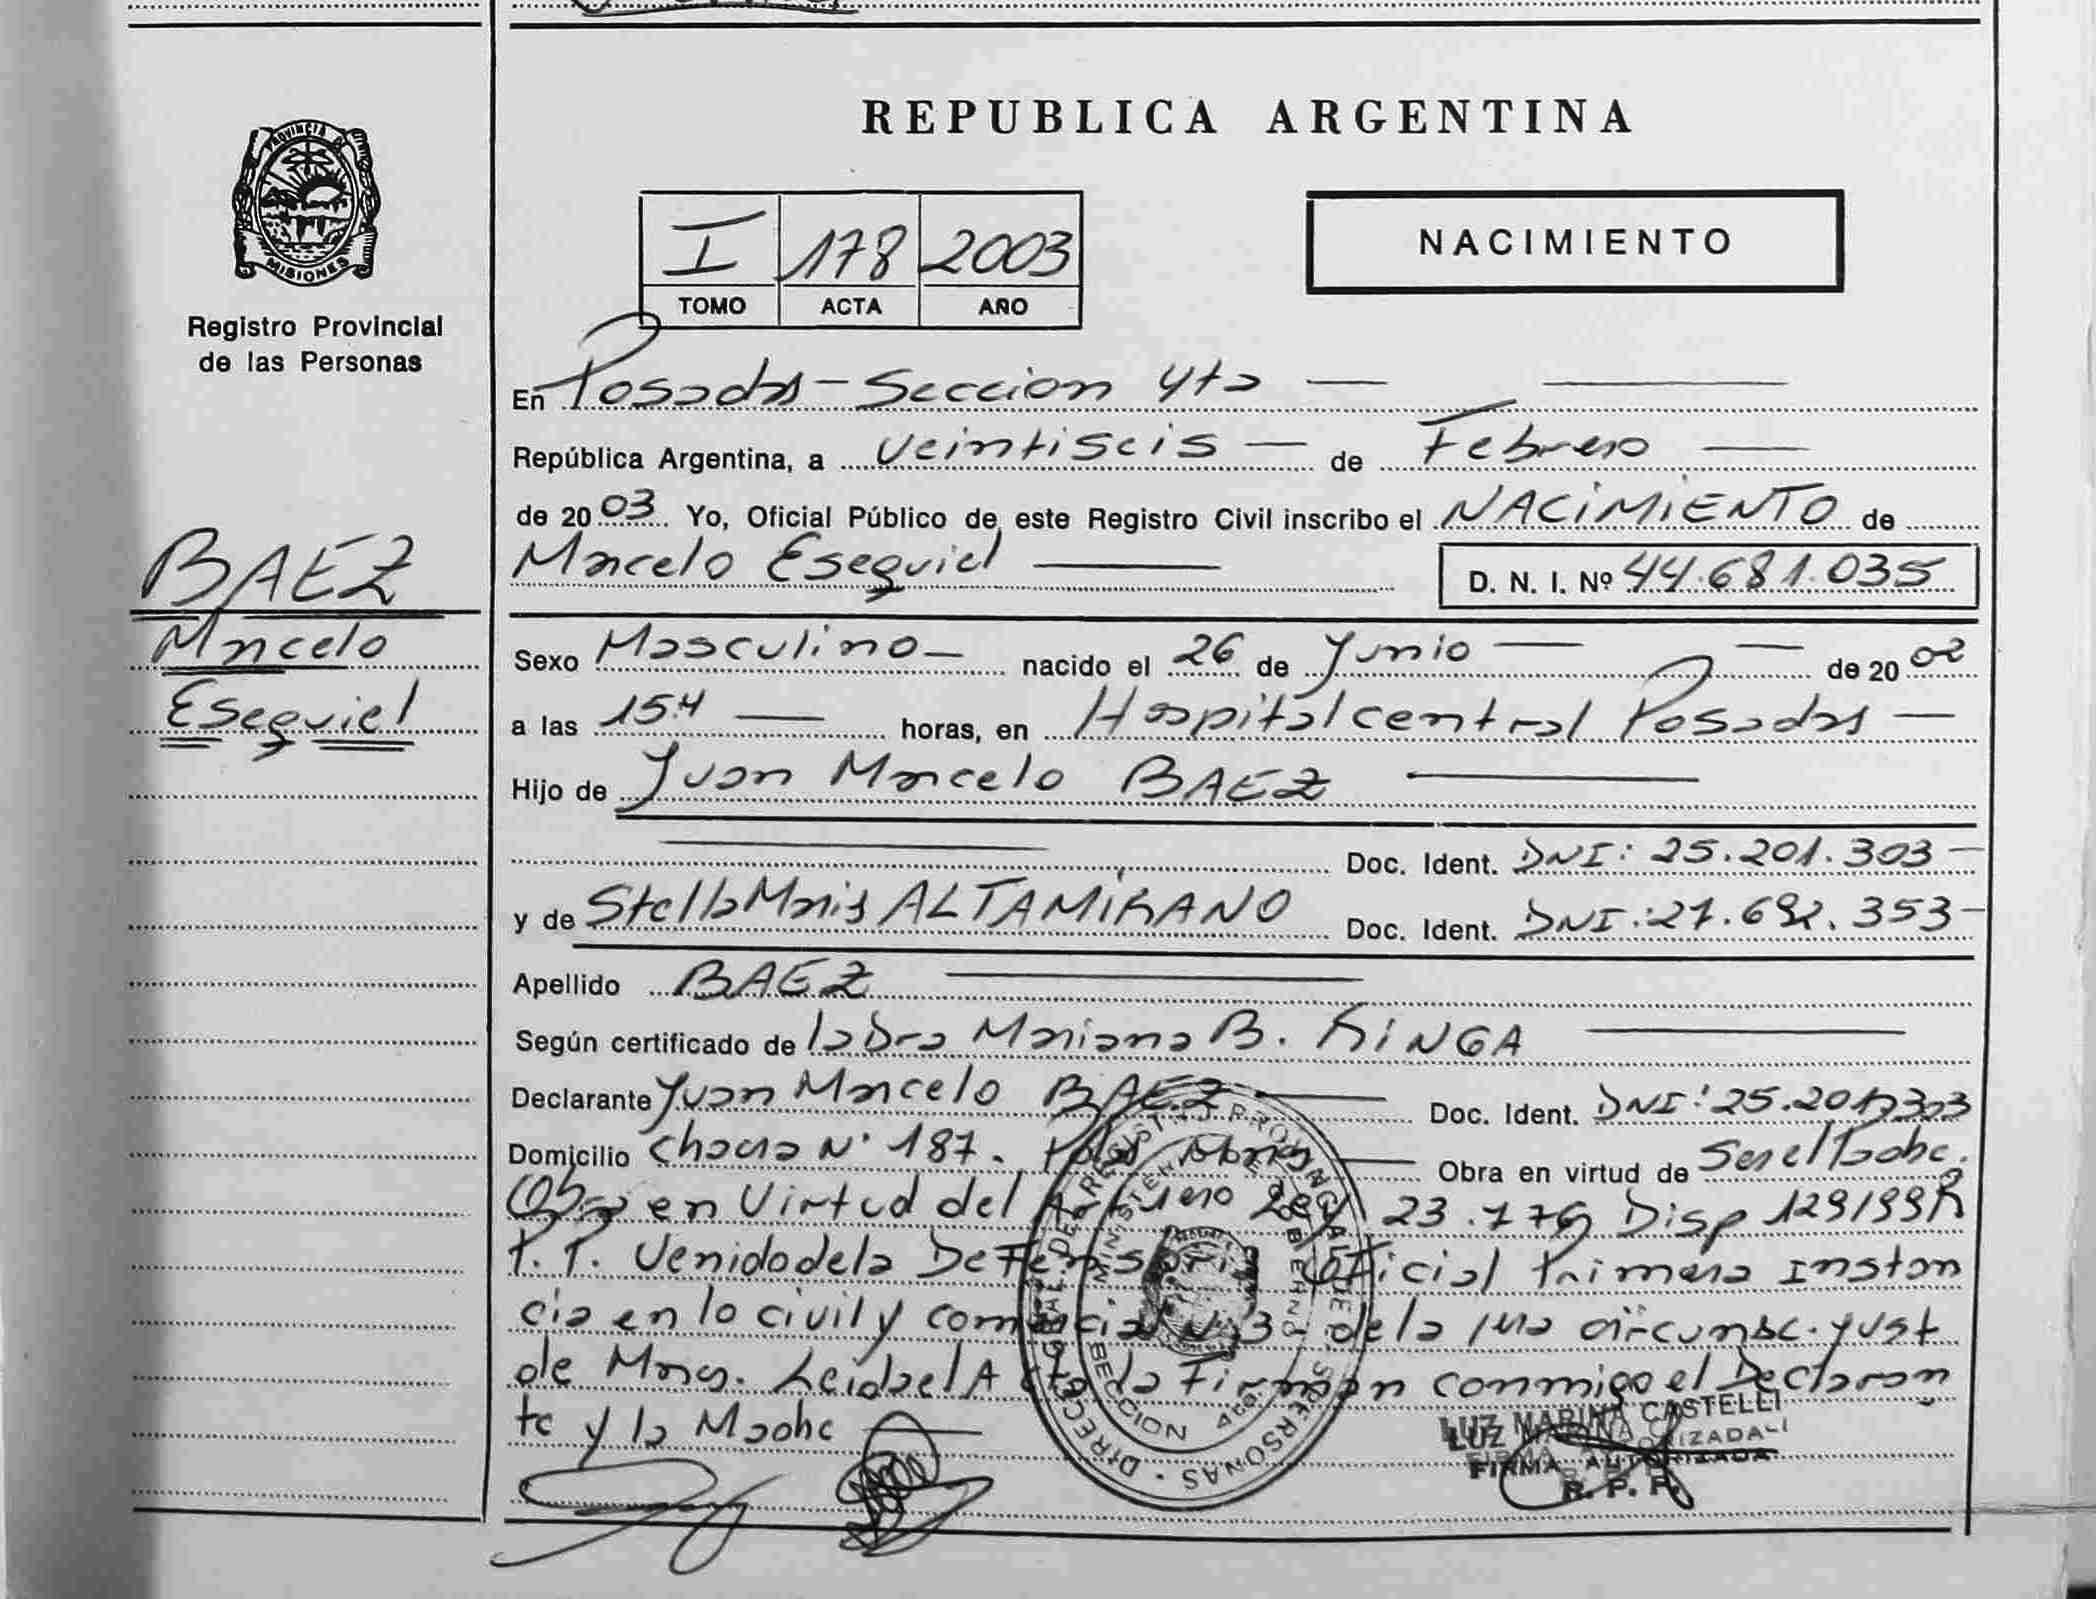 PROVINCIA DE
MISIONES
Registro Provincial
de las Personas
BAEZ
Marcelo
Esequiel
REPUBLICA ARGENTINA
I 178 2003
TOMO ACTA AÑO
NACIMIENTO
En Posadas - Seccion 4ta
República Argentina, a veintiseis de Febrero
de 2003 Yo, Oficial Público de este Registro Civil inscribo el NACIMIENTO de
Marcelo Esequiel D. N. I. Nº 44.681.035
Sexo Masculino nacido el 26 de Junio de 2002
a las 15.4 horas, en Hospital central Posadas
Hijo de Juan Marcelo BAEZ
Doc. Ident. DNI: 25.201.303
y de Stella Maris ALTAMIRANO Doc. Ident. DNI: 27.692.353
Apellido BAEZ
Según certificado de la Dra Mariana B. RINGA
Declarante Juan Marcelo BAEZ Doc. Ident. DNI: 25.201.303
Domicilio Chacra Nº 187. Obra en virtud de Ser el Padre.
Obra en Virtud del Ley 23.179 Disp 129/99 R
P. P. Venido de la Defensoria Oficial Primera Instan
cia en lo civil y comercial Nº 3 de la 1ra circunsc. Just
de Mnes. Leida el Acta la Firman conmigo el Declaran
te y la Madre
DIRECCION REGISTRO PROVINCIAL DE PERSONAS
MINISTERIO DE GOBIERNO
SECCION 4ta
LUZ MARINA CASTELLI
FIRMA AUTORIZADA
R. P. P.